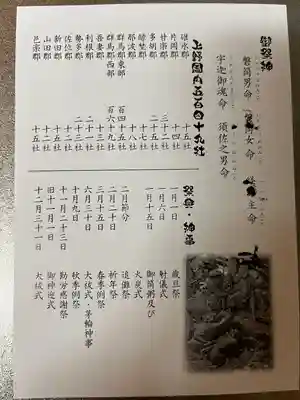 御祭神
磐筒男命 磐筒女命 経津主命
宇迦御魂命 須佐之男命
上野国内五百四十九社
碓氷郡 十五社
片岡郡 十四社
甘楽郡 三十二社
多胡郡 二十五社
緑埜郡 十七社
那波郡 十八社
群馬郡東郡 百四十五社
群馬郡西部 百六十九社
吾妻郡 十三社
利根郡 二十一社
勢多郡 二十三社
佐位郡 十二社
新田郡 十五社
山田郡 十五社
邑楽郡 十五社
祭典・神事
一月一日 歳旦祭
一月六日 射儀式
一月十五日 御筒粥及び
火炭式
二月節分 追儺祭
二月二十日 祈年祭
三月十五日 春季例祭
六月三十日 大祓式・茅輪神事
十月九日 秋季例祭
十一月二十三日 勤労感謝祭
旧十一月一日 御神迎式
十二月三十一日 大祓式